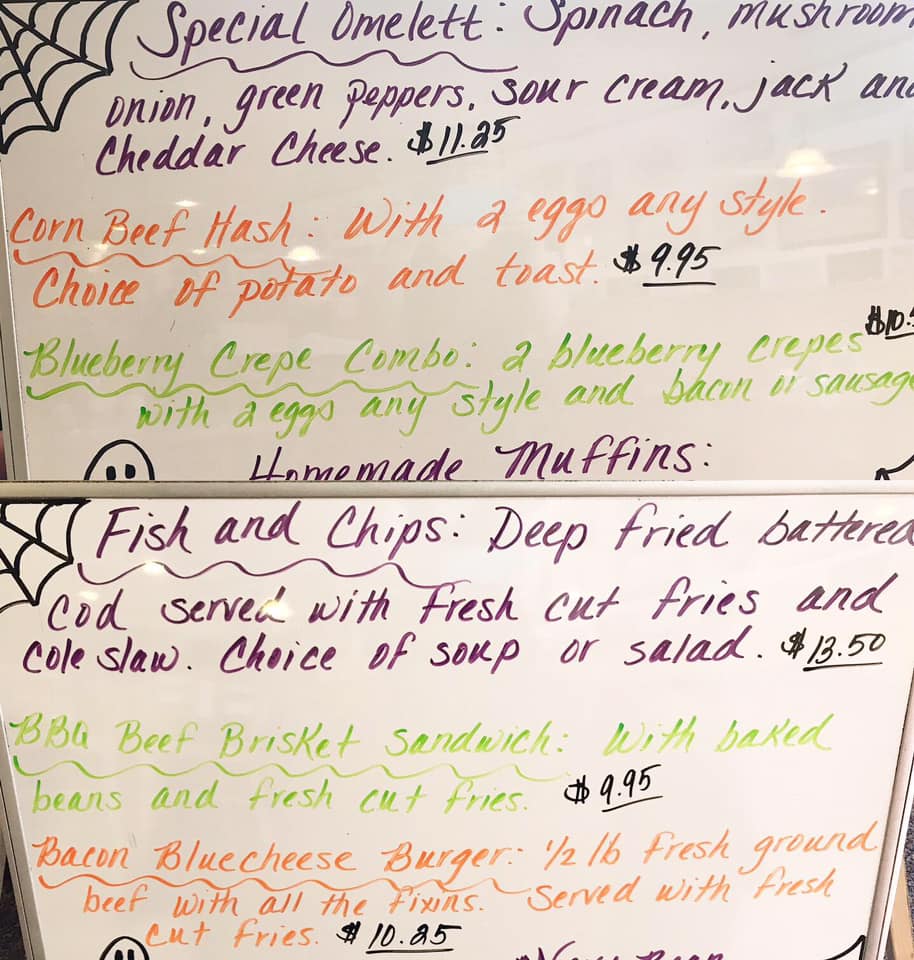 Special Omelett: Spinach, mushroom
onion, green peppers, sour cream, jack and
Cheddar Cheese. $11.25
Corn Beef Hash: With 2 eggs any style.
Choice of potato and toast. $9.95
$10.
Blueberry Crepe Combo: 2 blueberry crepes
with 2 eggs any style and bacon or sausage
Homemade Muffins:
Fish and Chips: Deep fried battered
Cod served with fresh cut fries and
Cole slaw. Choice of soup or salad. $13.50
BBQ Beef Brisket Sandwich: With baked
beans and fresh cut fries. $9.95
Bacon Bluecheese Burger: 1/2 lb fresh ground
beef with all the fixins. Served with fresh
cut fries. $10.25